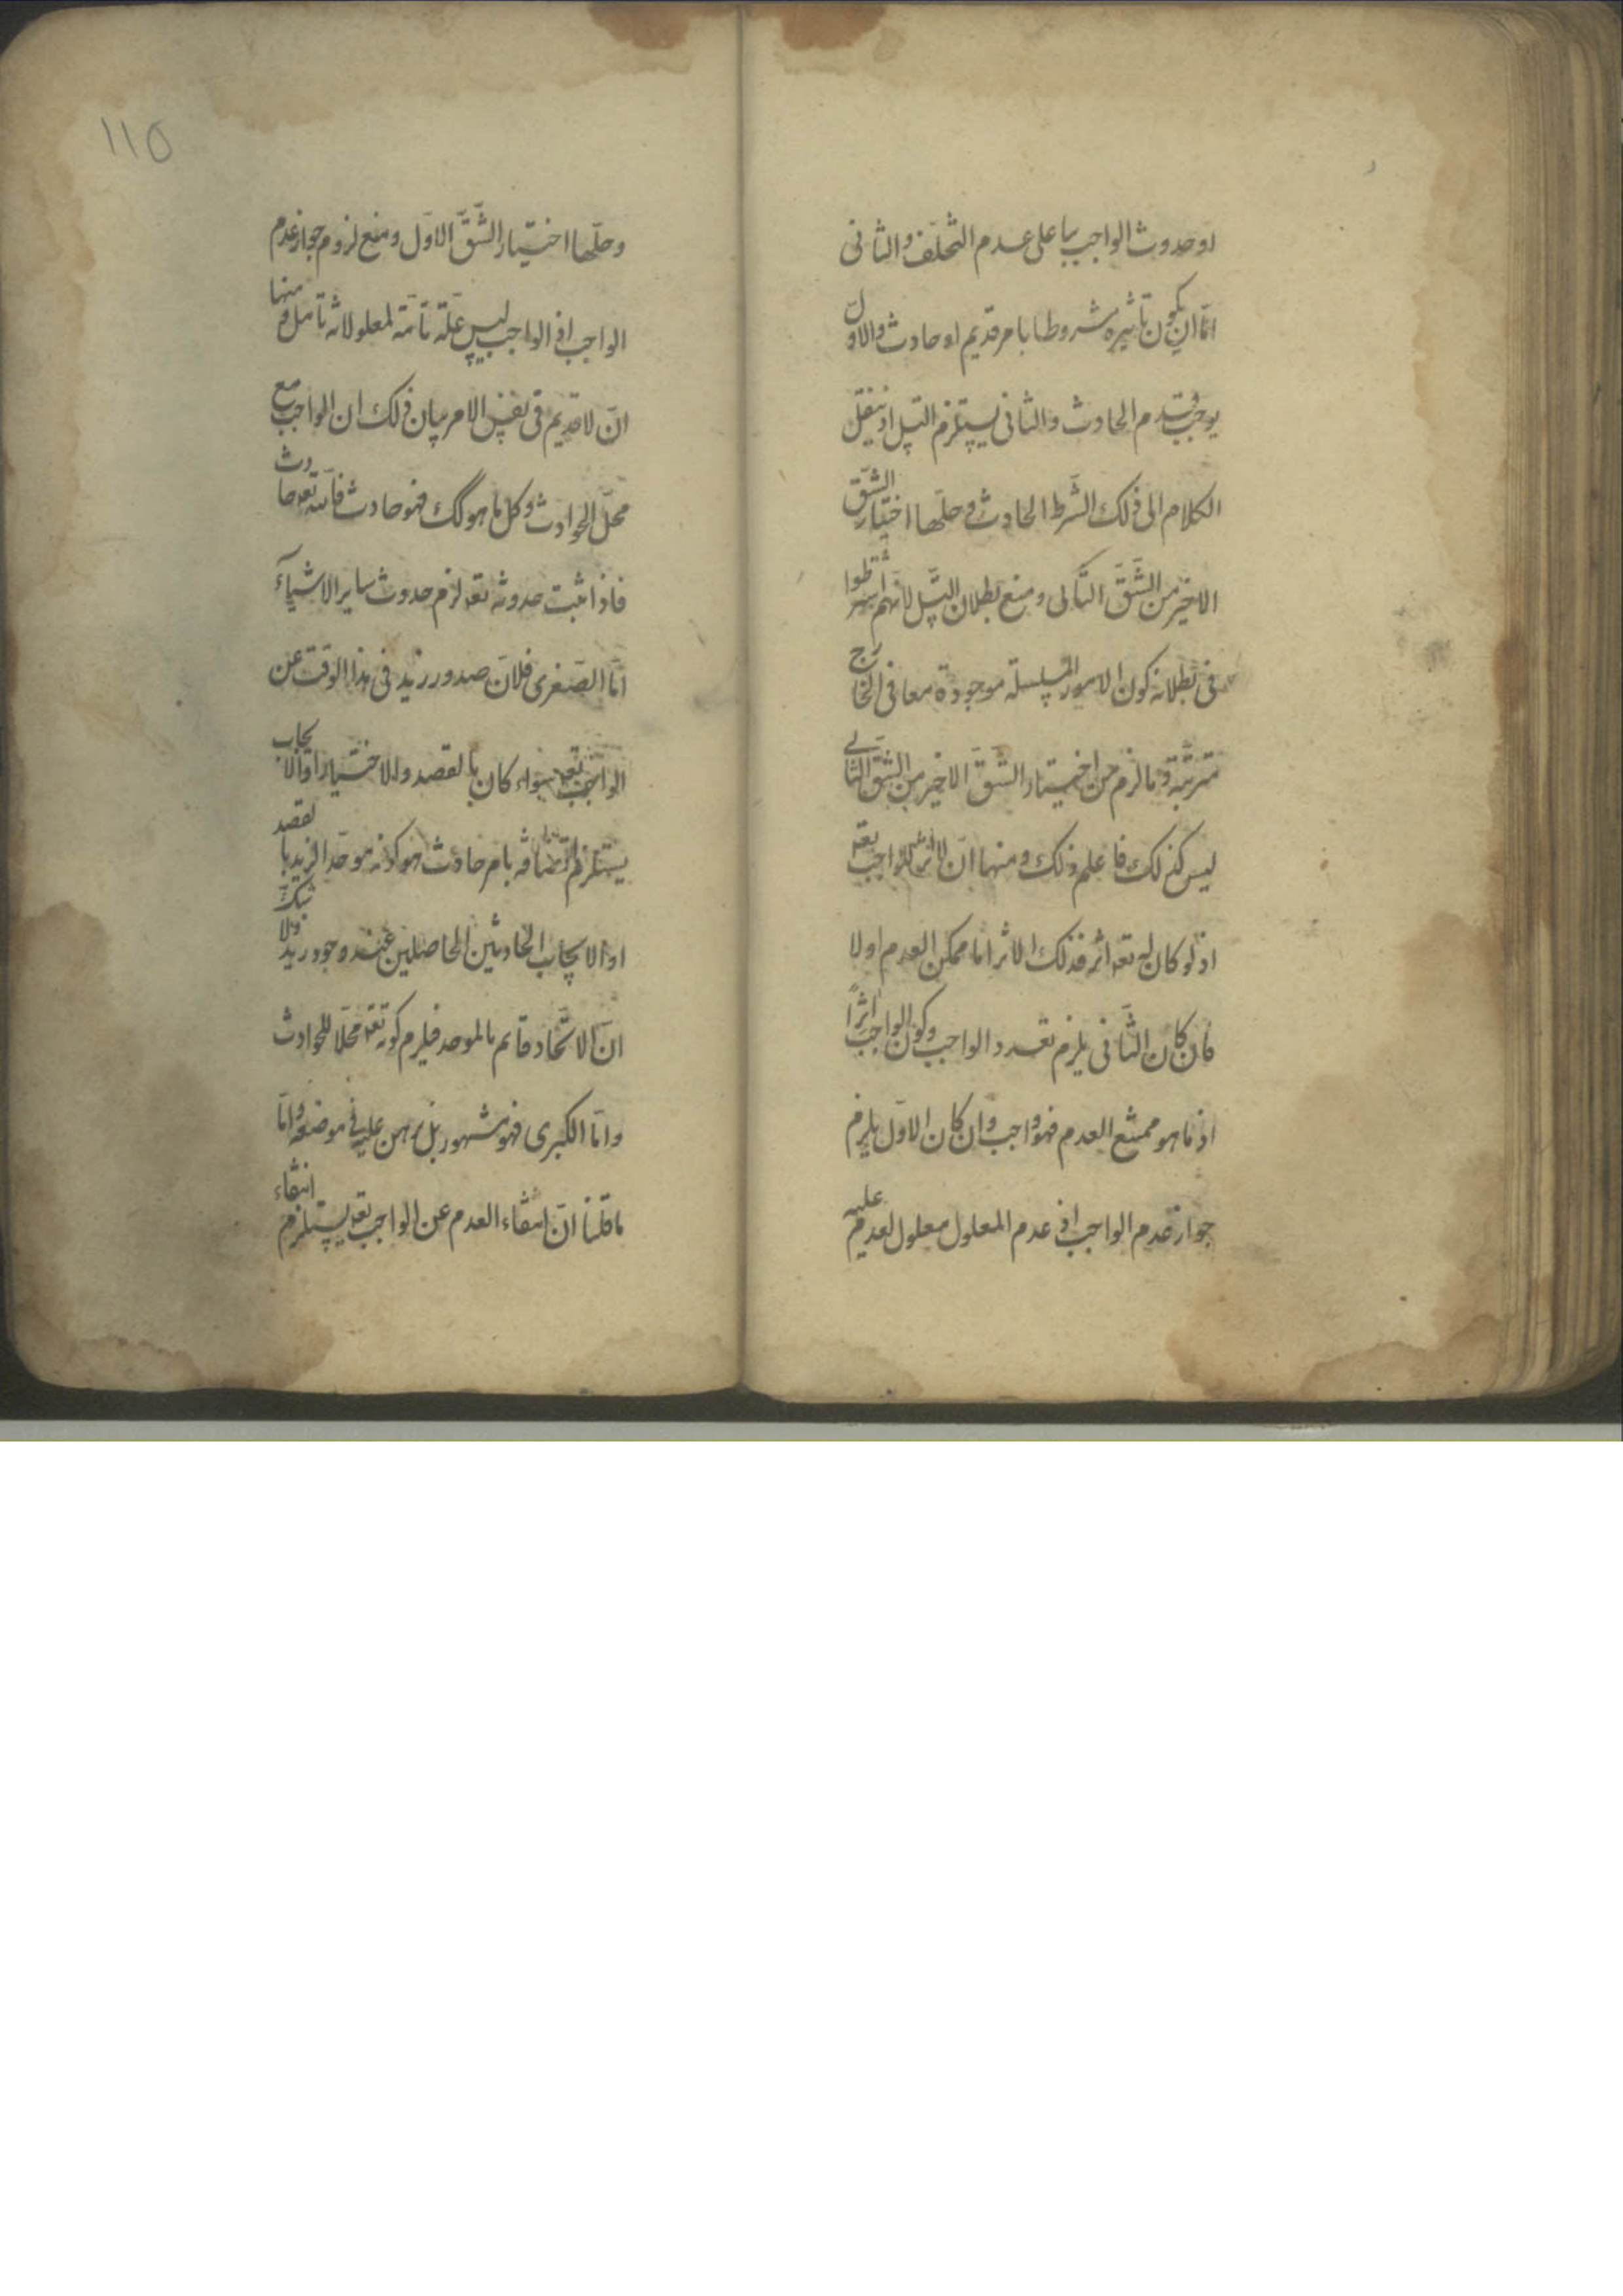 او حدوث الواجب بناء على عدم التخلف والثانى
امّا ان يكون تأثيره مشروطا بامر قديم او حادث والاول
يوجب قدم الحادث والثانى يستلزم التسل اذ ننقل
الكلام الى ذلك الشّرط الحادث وحلّها اختيار الشّق
الاخير من الشّقّ الثانى ومنع بطلان التسل لانهم اشترطوا
فى بطلانه كون الامور المتسلسلة موجودة معا فى الخارج
مترتبة وما لزم من اختيار الشّقّ الاخير من الشّق الثانى
ليس كذلك فاعلم ذلك ومنها انّ لا اثر للواجب تعه
اذ لو كان له تعه اثر فذلك الاثر اما ممكن العدم اولا
فان كان الثّانى يلزم تعدد الواجب وكون الواجب اثرًا
اذ ما هو ممتنع العدم فهو واجب وان كان الاوّل يلزم
جواز عدم الواجب اذ عدم المعلول معلول لعدم علّيه
110
وحلّها اختيار الشّقّ الاوّل ومنع لزوم جواز عدم
الواجب اذ الواجب ليس علّة تامّة لمعلولاته تأمل ومنها
انّ لا قديم فى نفس الامر بيان ذلك ان الواجب مع
محلّ الحوادث وكل ما هو كك فهو حادث فانّه تعه حادث
فاذا ثبت حدوثه تعه لزم حدوث ساير الاشياء
امّا الصّغرى فلانّ صدور زيد فى هذا الوقت عن
الواجب تعه سواء كان بالقصد والاختيار او الايجاب
يستلزم اتّصافه بامر حادث هو كونه موجدا لزيد بالقصد
او الايجاب الحادثين الحاصلين عند وجود زيد ولا شك
انّ الايجاد قايم بالموجد فيلزم كونه تعه محلّا للحوادث
وامّا الكبرى فهو مشهور بل برهن عليه فى موضعه وامّا
ما قلنا انّ انتفاء العدم عن الواجب تعه يستلزم انتفاء